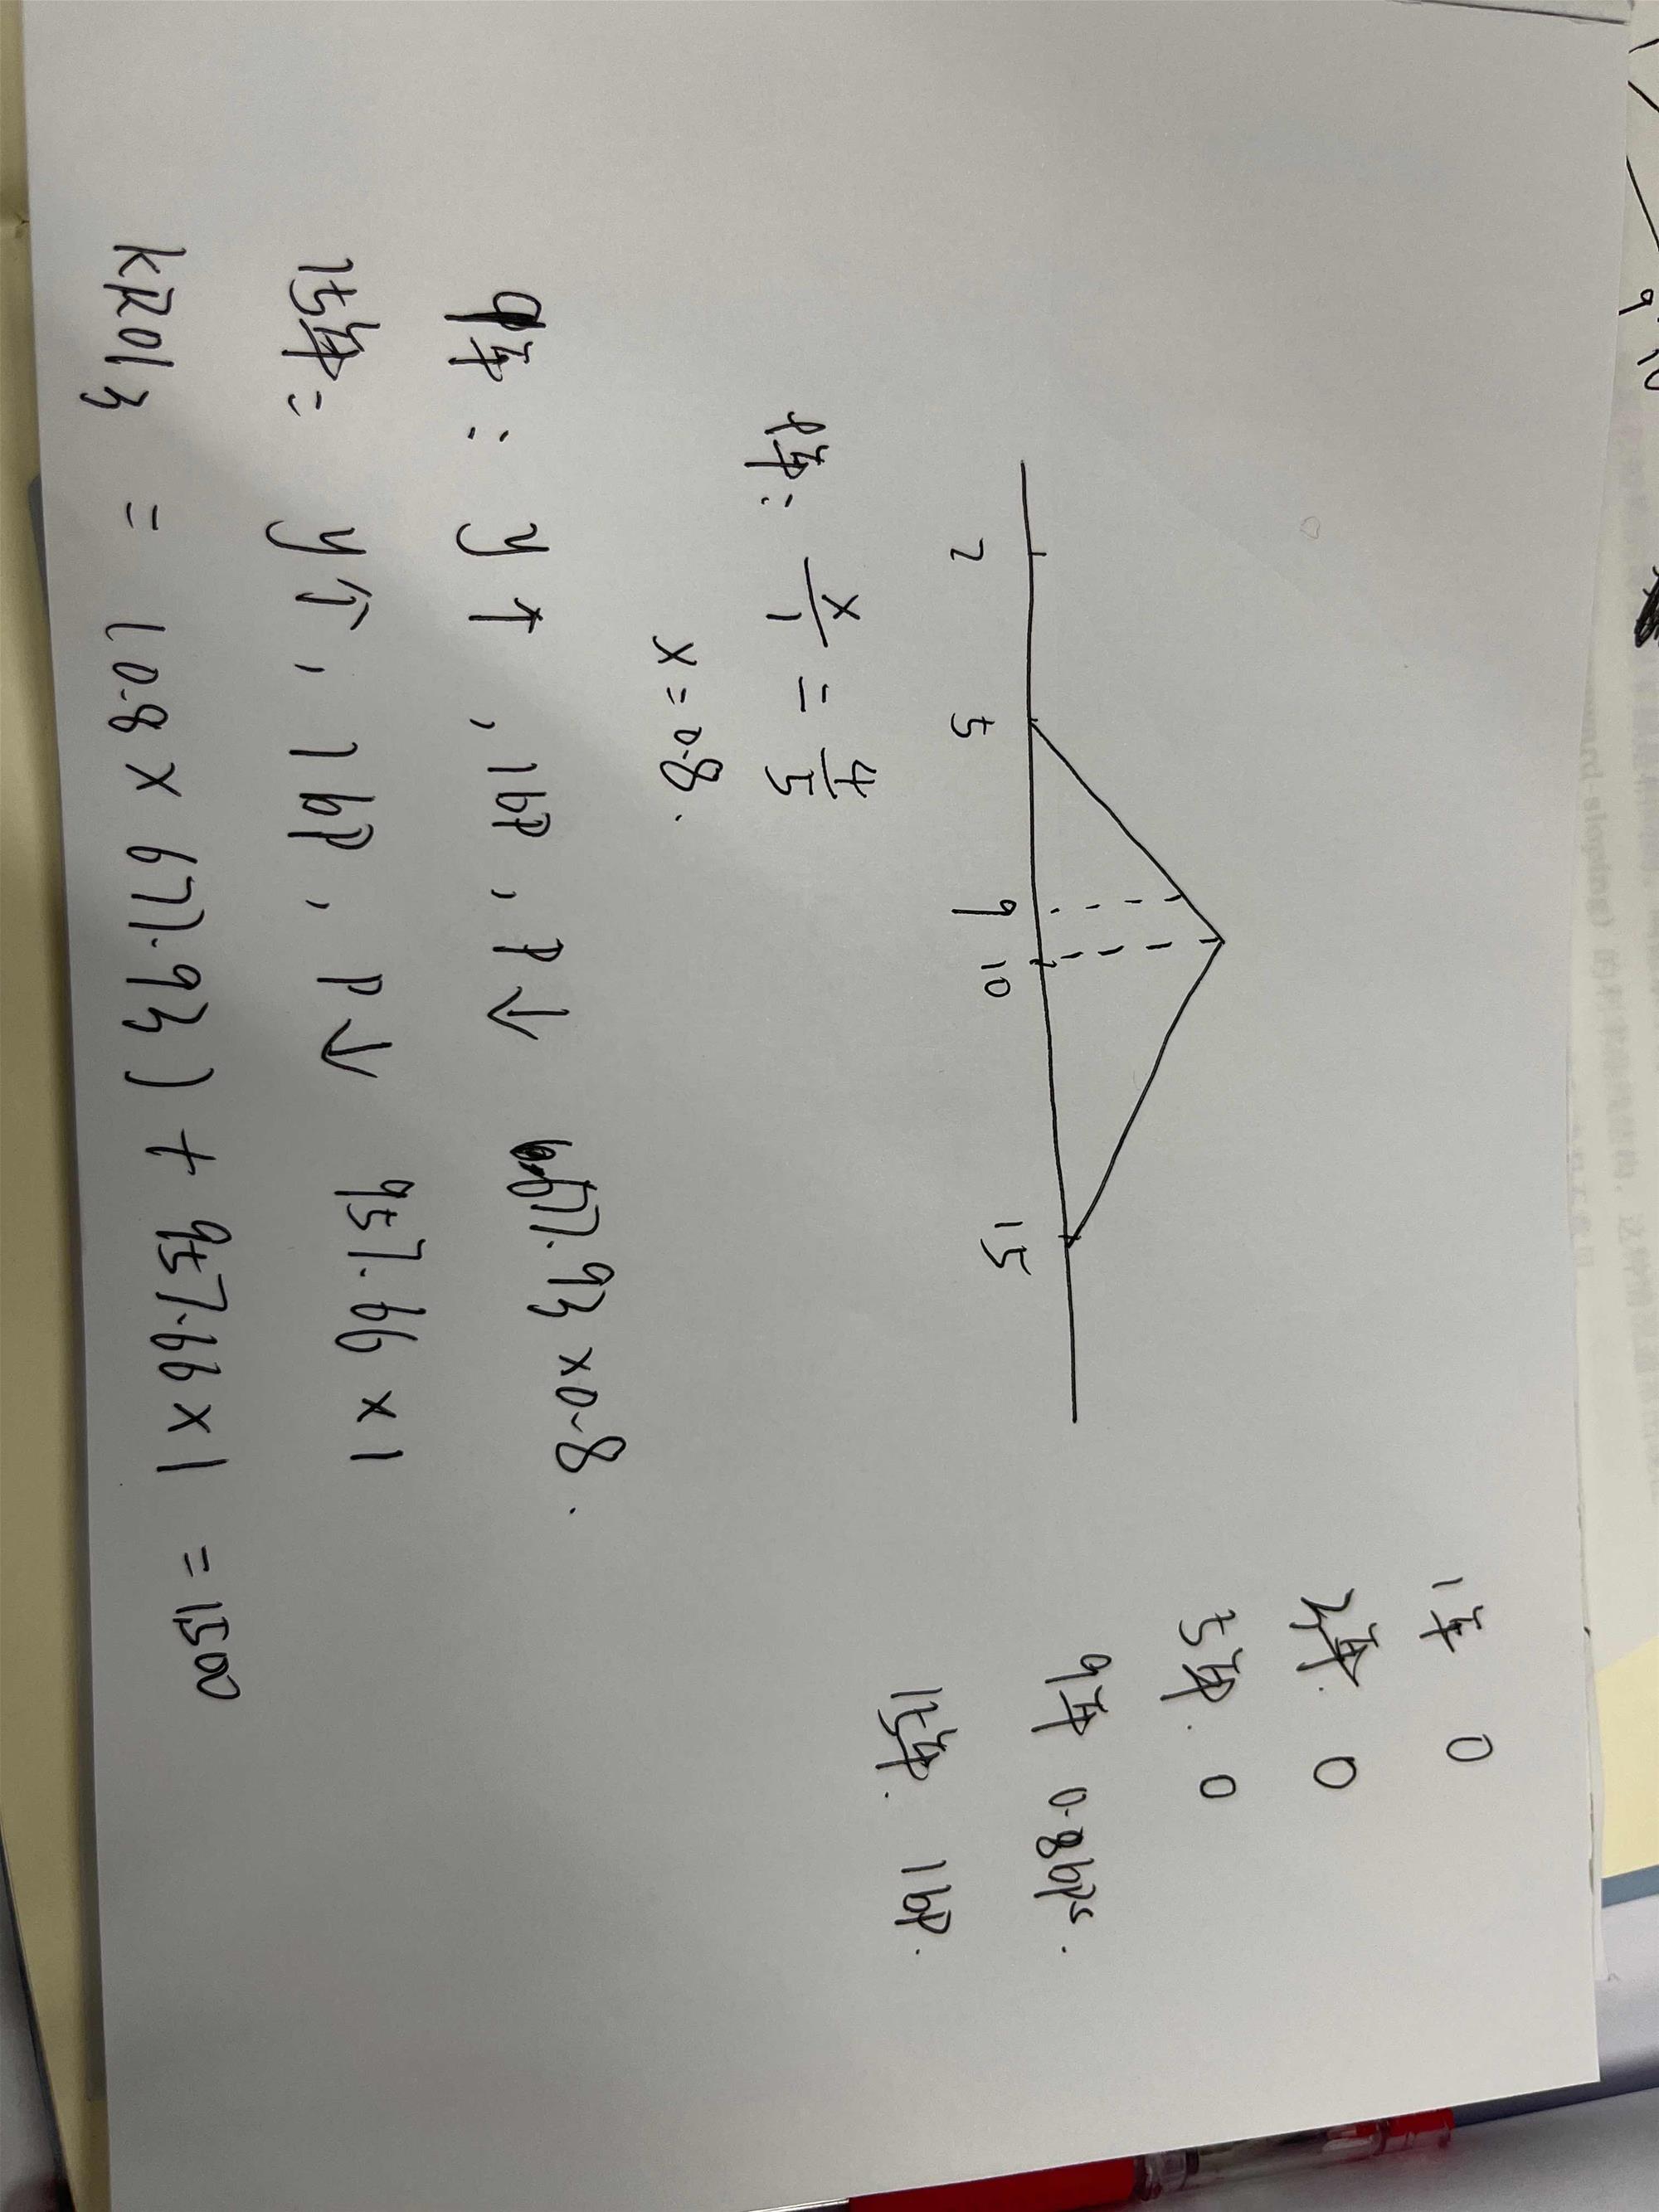 1年 0
2年. 0
5年. 0
9年 0.8bps.
15年. 1bp.
2 5 9 10 15
9年: x/1 = 4/5
x = 0.8.
9年: y↑, 1bp, P↓ 677.93 × 0.8.
15年: y↑, 1bp, P↓ 957.66 × 1
KR013 = (0.8 × 677.93) + 957.66 × 1 = 1500